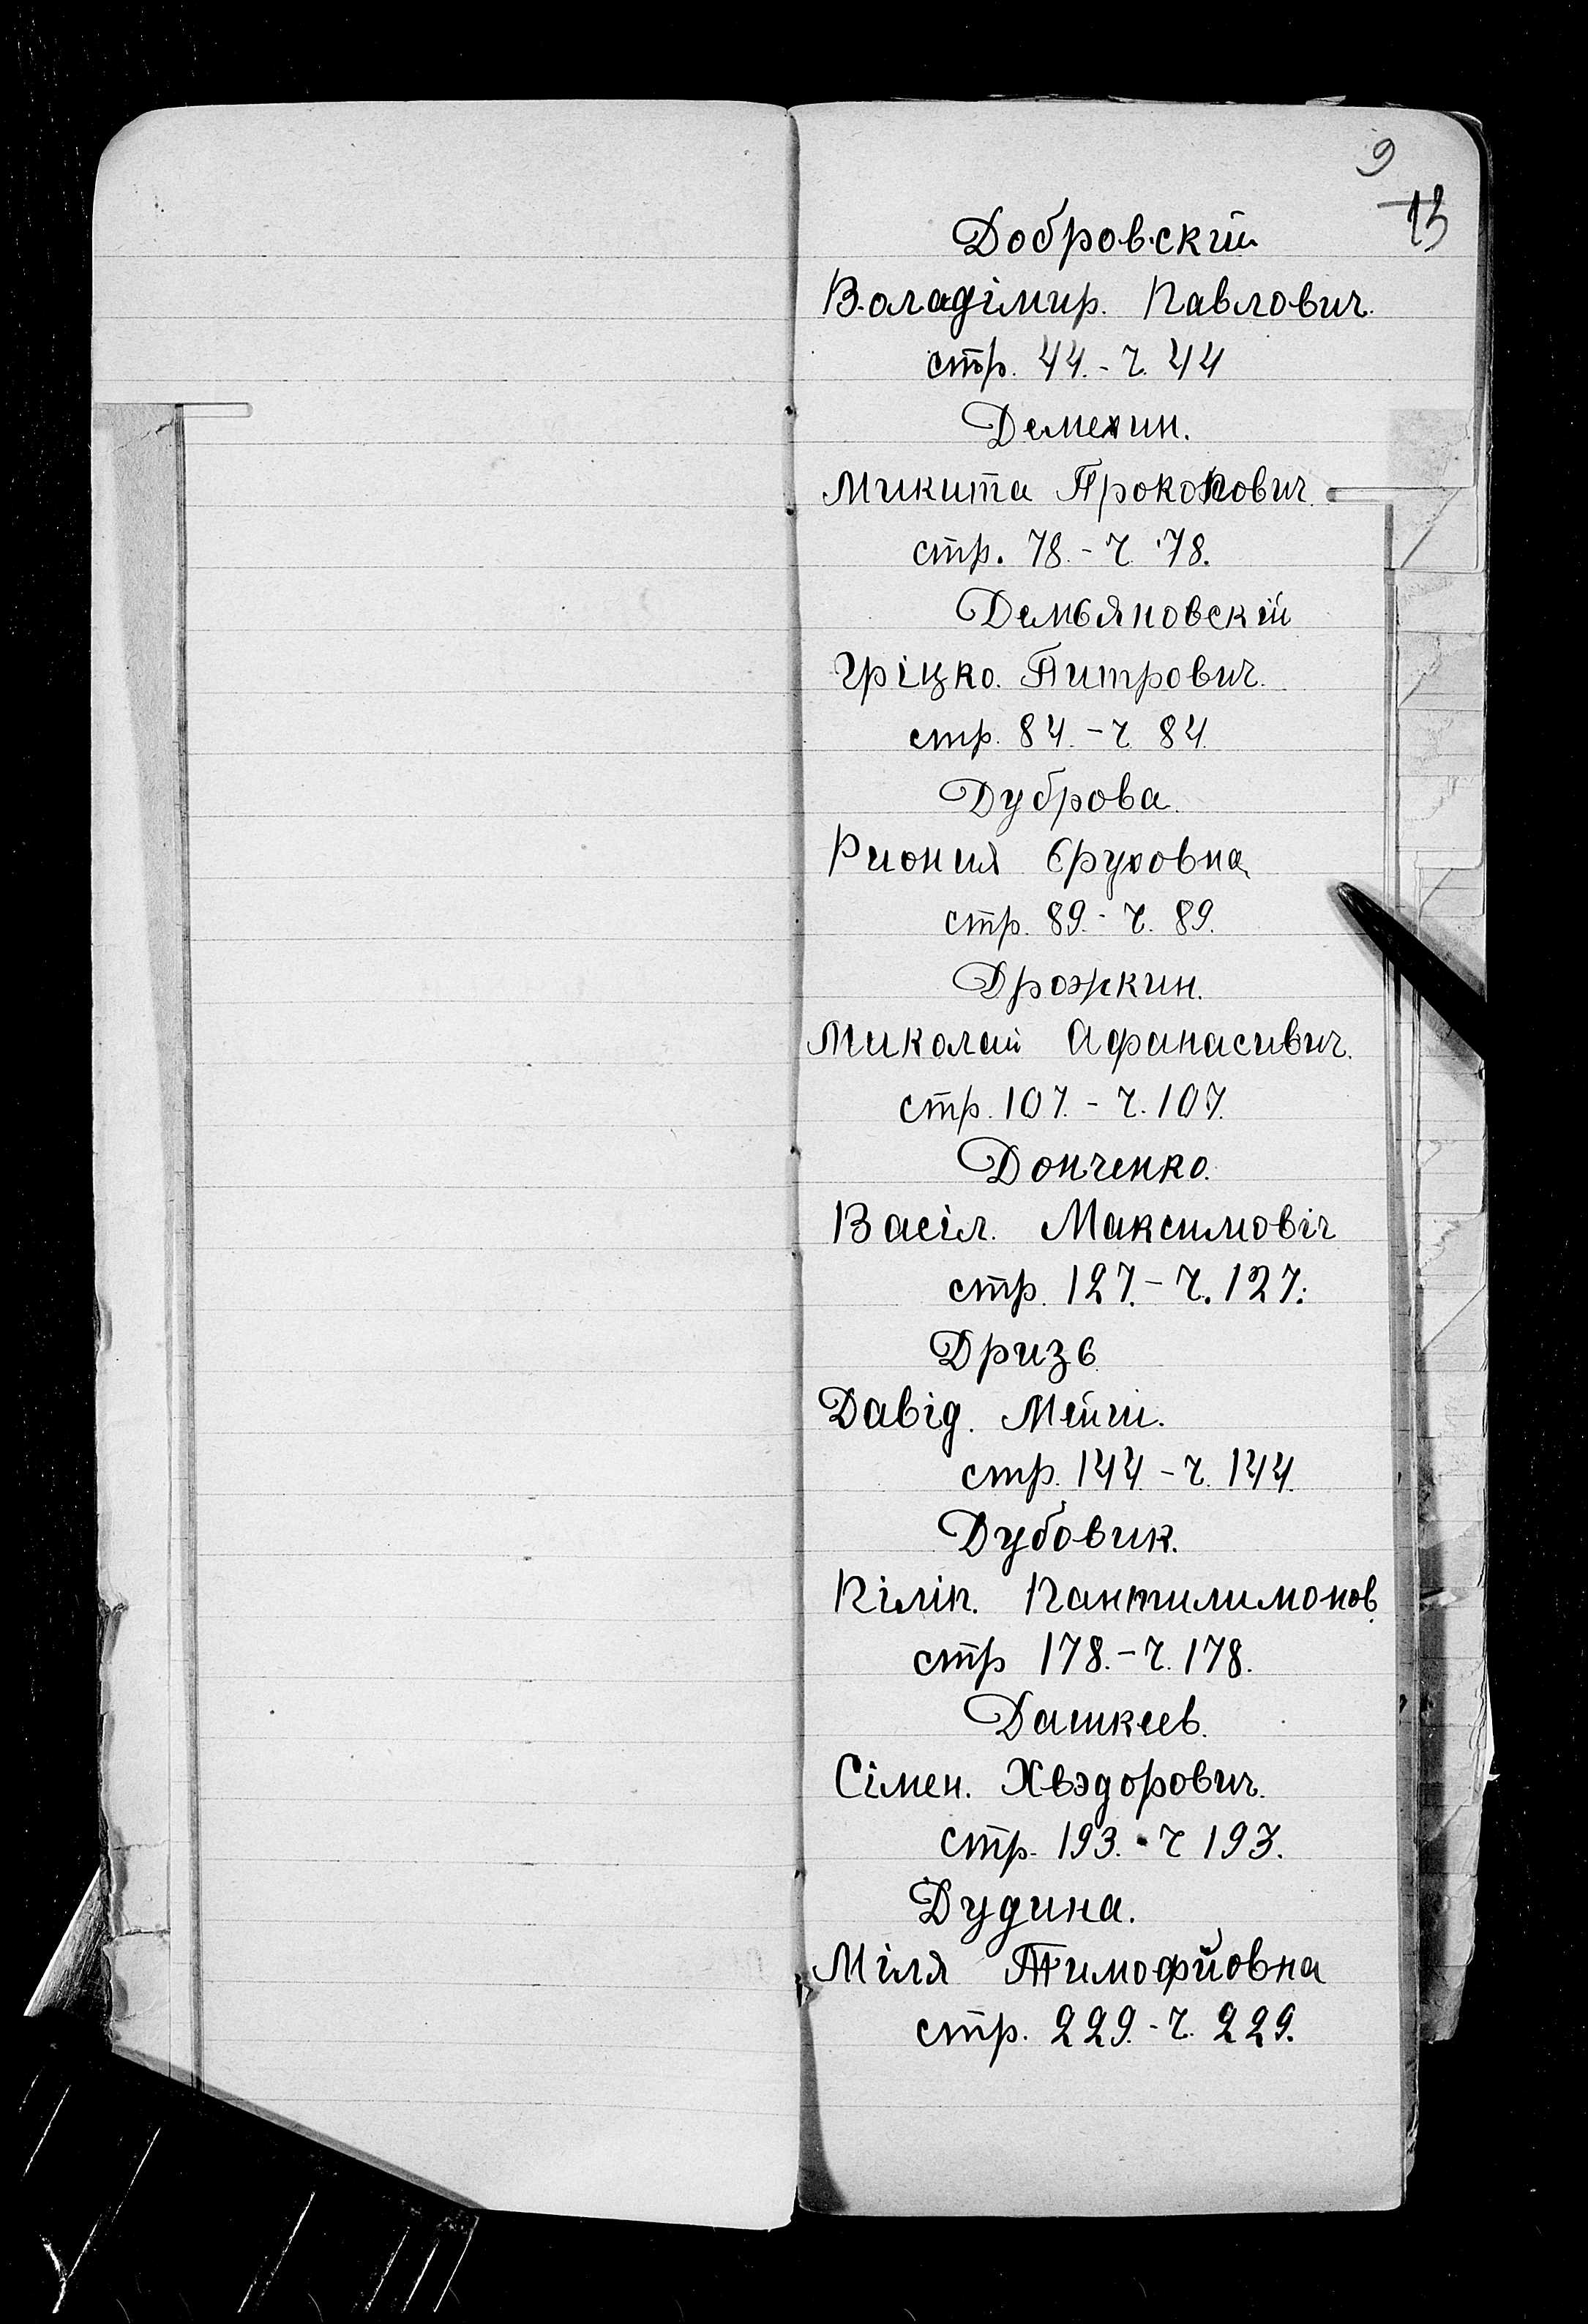 9
13
Добровский
Воладімир. Павлович.
стр. 44. - ч. 44
Демехин.
Микита Прокопович.
стр. 78. - ч. 78.
Демьяновскій
Гріцко. Питрович.
стр. 84. - ч. 84.
Дуброва.
Єруховна
стр. 89. - ч. 89.
Дрожкин.
Миколай Афанасивич.
стр. 107. - ч. 107.
Донченко.
Васіл. Максимовіч
стр. 127. - ч. 127.
Дризь
Давід.
стр. 144. - ч. 144.
Дубовик.
Піліп. Пантилимонов.
стр 178. - ч. 178.
Дашкеев.
Сімен. Хвэдорович.
стр. 193. - ч 193.
Дудина.
Міля Тимофійовна
стр. 229. - ч. 229.